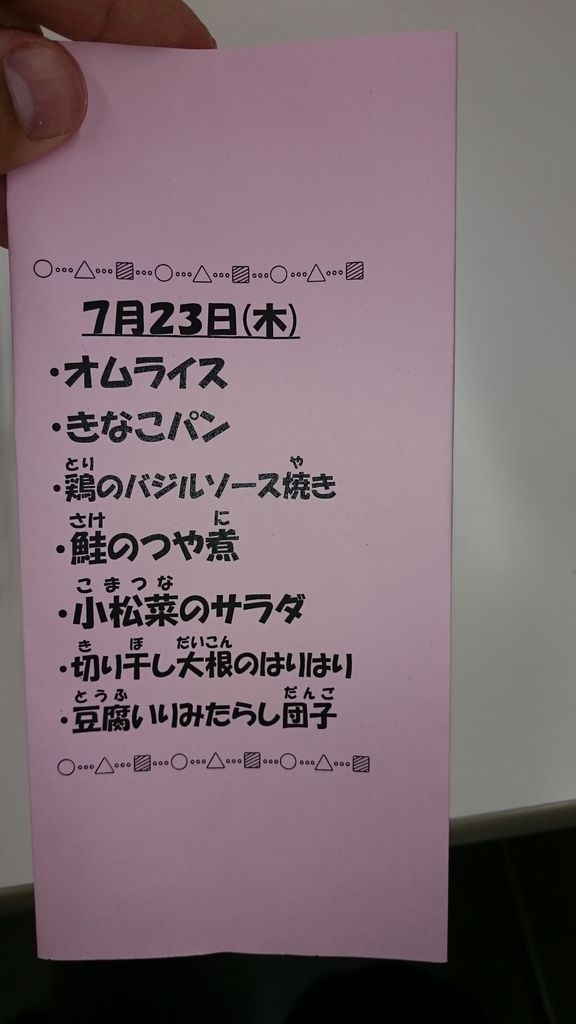 ○…△…▨…○…△…▨…○…△…▨
7月23日(木)
・オムライス
・きなこパン
とり や
・鶏のバジルソース焼き
さけ に
・鮭のつや煮
こまつな
・小松菜のサラダ
き ほ だいこん
・切り干し大根のはりはり
とうふ だんご
・豆腐いりみたらし団子
○…△…▨…○…△…▨…○…△…▨